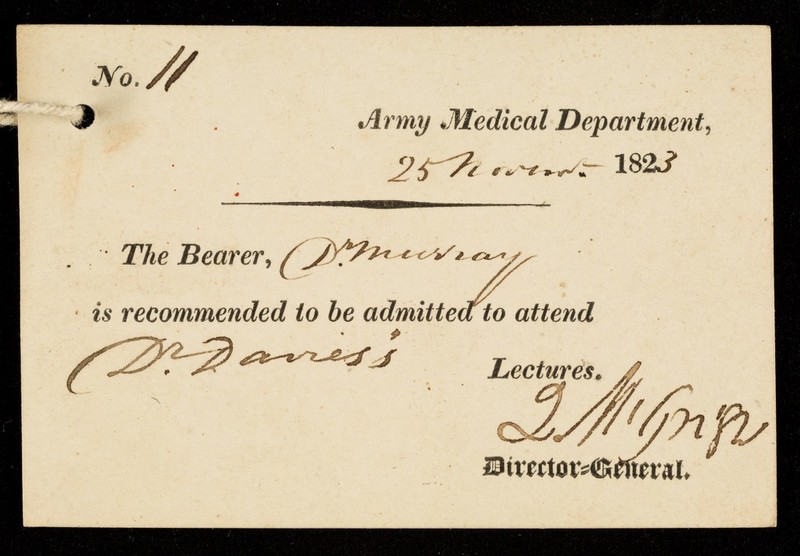 No. 11
Army Medical Department,
25 Novemr. 1823
The Bearer, Dr. Murray
is recommended to be admitted to attend
Dr. Davies's
Lectures.
J. McGrigor
Director-General.